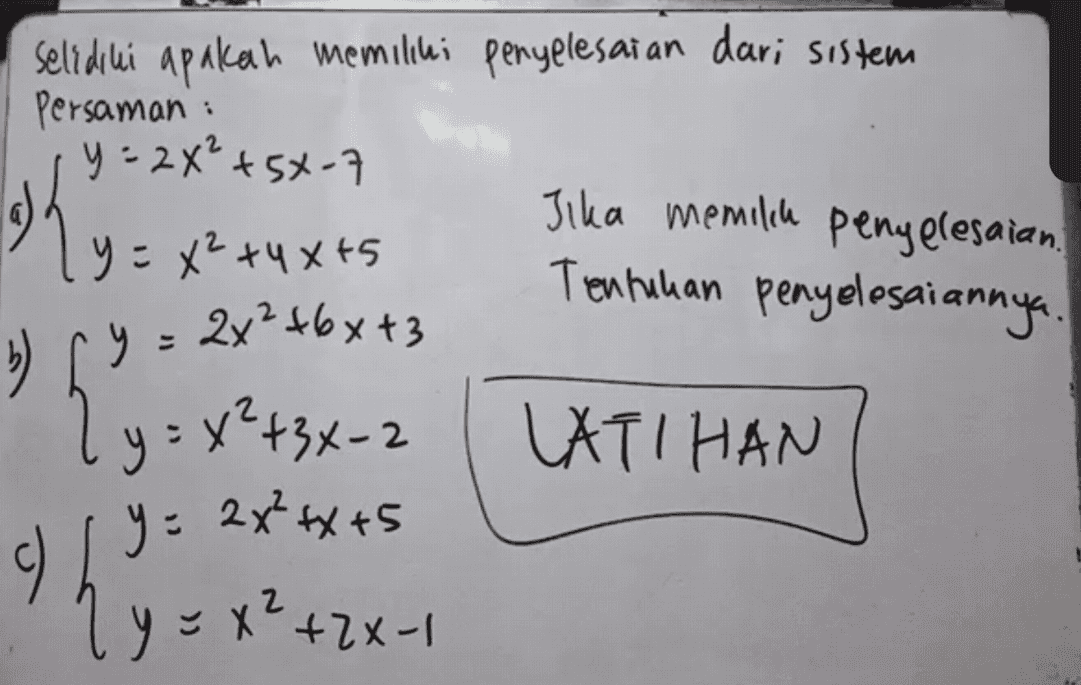 Selidiki apakah memiliki penyelesaian dari sistem
Persaman :
a) { y = 2x² + 5x - 7
y = x² + 4x + 5
Jika memilih penyelesaian.
Tentukan penyelesaiannya.
b) { y = 2x² + 6x + 3
y = x² + 3x - 2
LATIHAN
c) { y = 2x² + x + 5
y = x² + 2x - 1